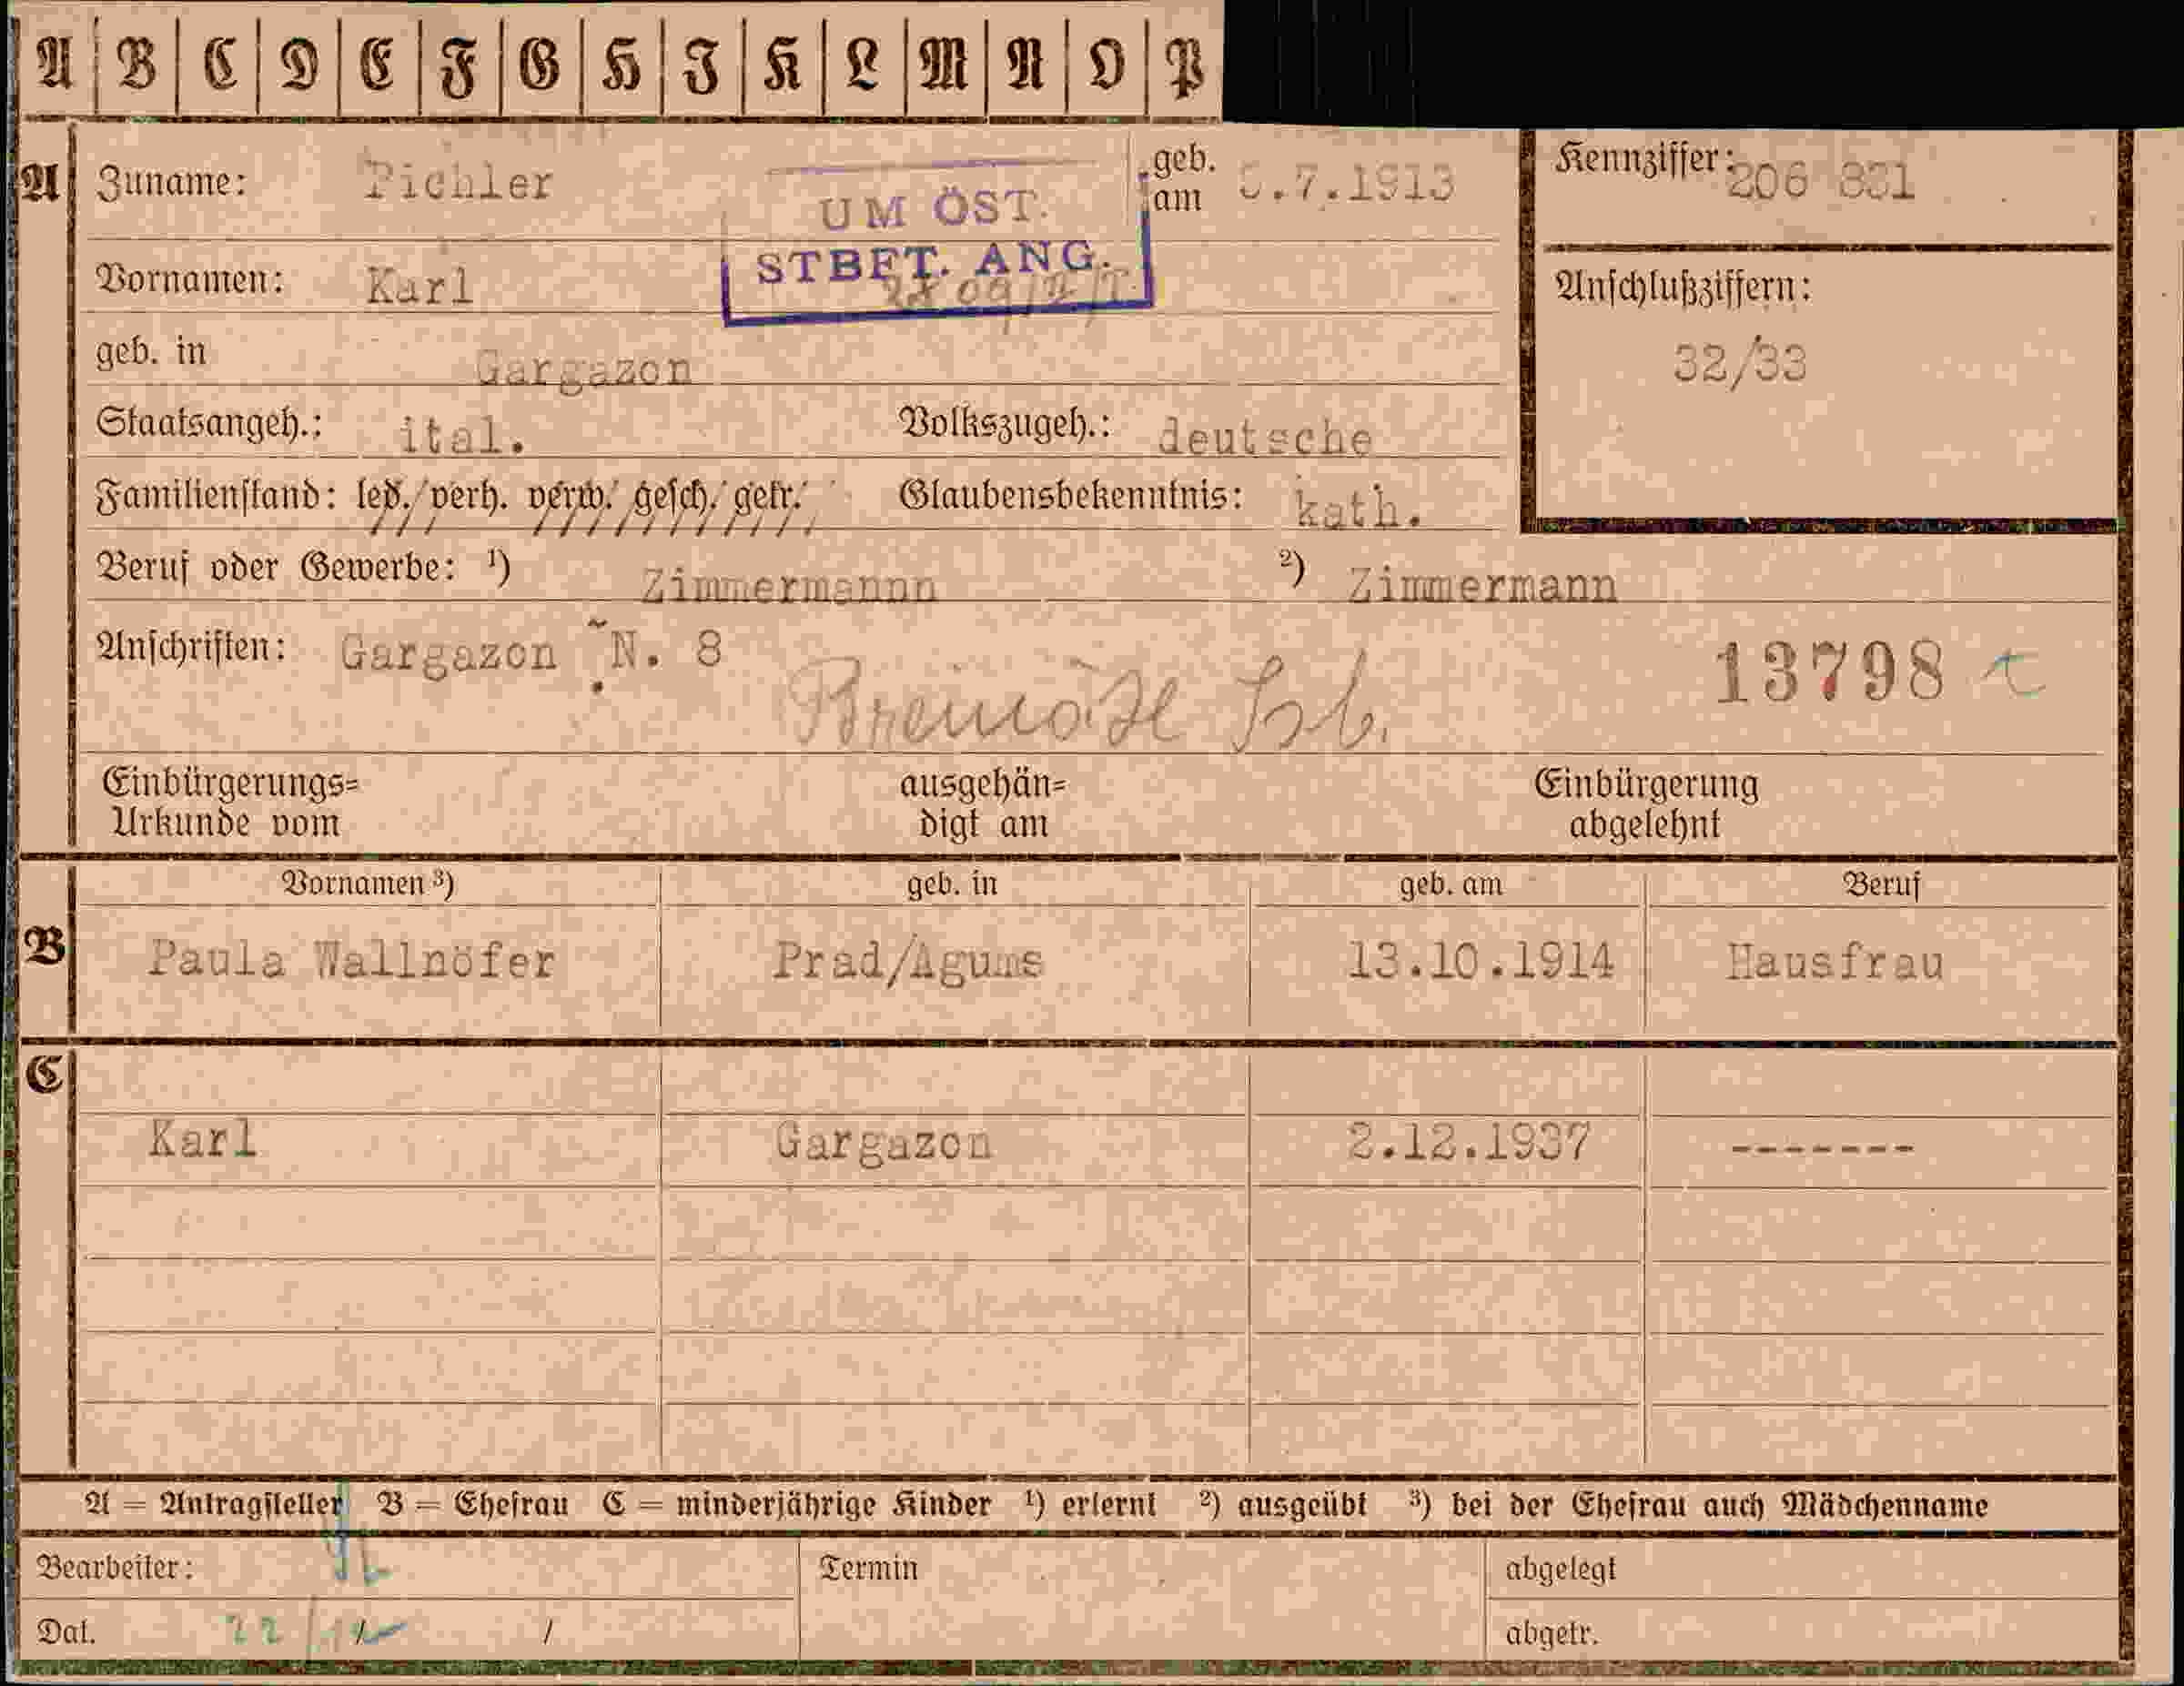 A B C D E F G H I K L M N O P
A Zuname: Pichler geb. am .7.1913 Kennziffer: 206 831
UM ÖST.
STBFT. ANG.
Vornamen: Karl Anschlußziffern:
32/33
geb. in Gargazon
Staatsangeh.: ital. Volkszugeh.: deutsche
Familienstand: led. verh. verw. gesch. getr. Glaubensbekenntnis: kath.
Beruf oder Gewerbe: ¹) Zimmermannn ²) Zimmermann
Anschriften: Gargazon N. 8 13798
Einbürgerungs= Urkunde vom ausgehän= digt am Einbürgerung abgelehnt
Vornamen ³) geb. in geb. am Beruf
B Paula Wallnöfer Prad/Agums 13.10.1914 Hausfrau
C
Karl Gargazon 2.12.1937 -------
A = Antragsteller B = Ehefrau C = minderjährige Kinder ¹) erlernt ²) ausgeübt ³) bei der Ehefrau auch Mädchenname
Bearbeiter: Termin abgelegt
Dat. 22/12 / abgetr.